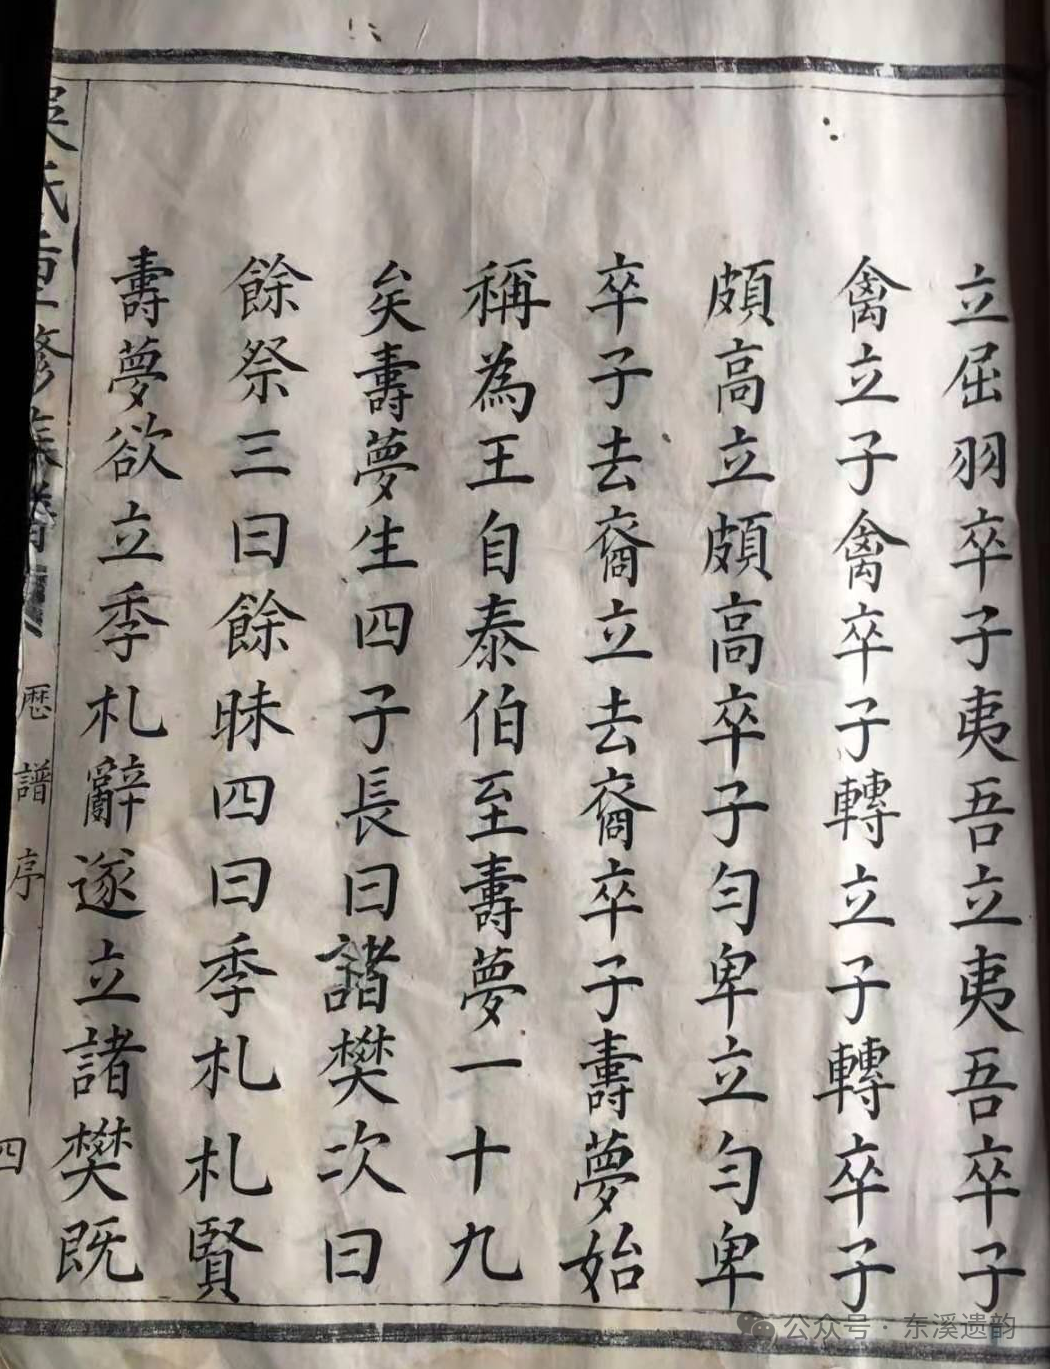 立屈羽卒子夷吾立夷吾卒子
禽立子禽卒子轉立子轉卒子
頗高立頗高卒子句卑立句卑
卒子去裔立去裔卒子壽夢始
稱為王自泰伯至壽夢一十九
矣壽夢生四子長曰諸樊次曰
餘祭三曰餘昧四曰季札札賢
壽夢欲立季札辭遂立諸樊既
歷譜序
四
公众号·东溪遗韵